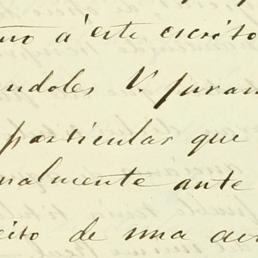 uno á este escrito
endoles V. juram
particular que
nalmente ante
cito de una de